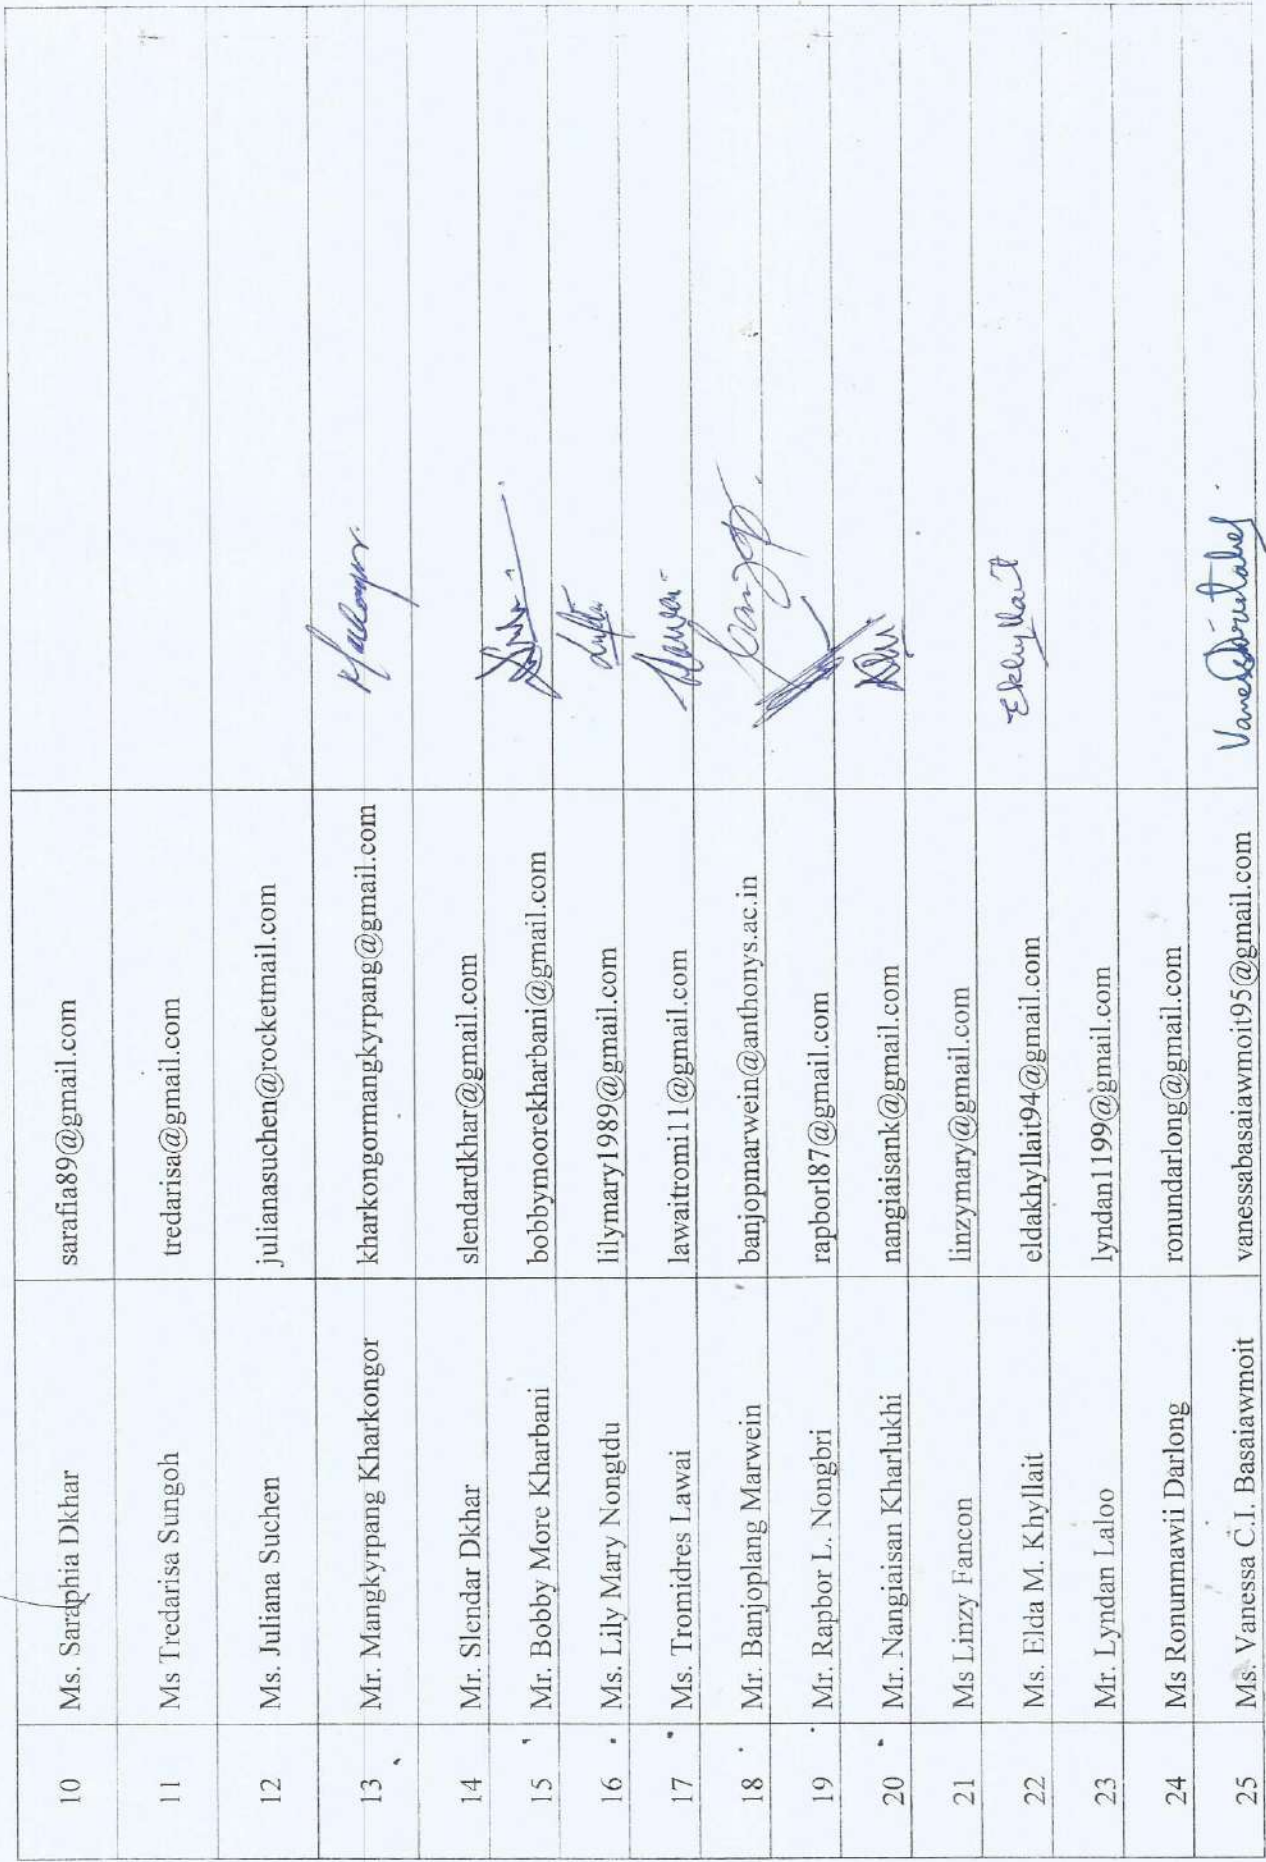 10 Ms. Saraphia Dkhar sarafia89@gmail.com
11 Ms Tredarisa Sungoh tredarisa@gmail.com
12 Ms. Juliana Suchen julianasuchen@rocketmail.com
13 Mr. Mangkyrpang Kharkongor kharkongormangkyrpang@gmail.com
14 Mr. Slendar Dkhar slendardkhar@gmail.com
15 Mr. Bobby More Kharbani bobbymoorekharbani@gmail.com
16 Ms. Lily Mary Nongtdu lilymary1989@gmail.com
17 Ms. Tromidres Lawai lawaitromi11@gmail.com
18 Mr. Banjoplang Marwein banjopmarwein@anthonys.ac.in
19 Mr. Rapbor L. Nongbri rapborl87@gmail.com
20 Mr. Nangiaisan Kharlukhi nangiaisank@gmail.com
21 Ms Linzy Fancon linzymary@gmail.com
22 Ms. Elda M. Khyllait eldakhyllait94@gmail.com Ekhyllait
23 Mr. Lyndan Laloo lyndan1199@gmail.com
24 Ms Ronunmawii Darlong ronundarlong@gmail.com
25 Ms. Vanessa C.I. Basaiawmoit vanessabasaiawmoit95@gmail.com